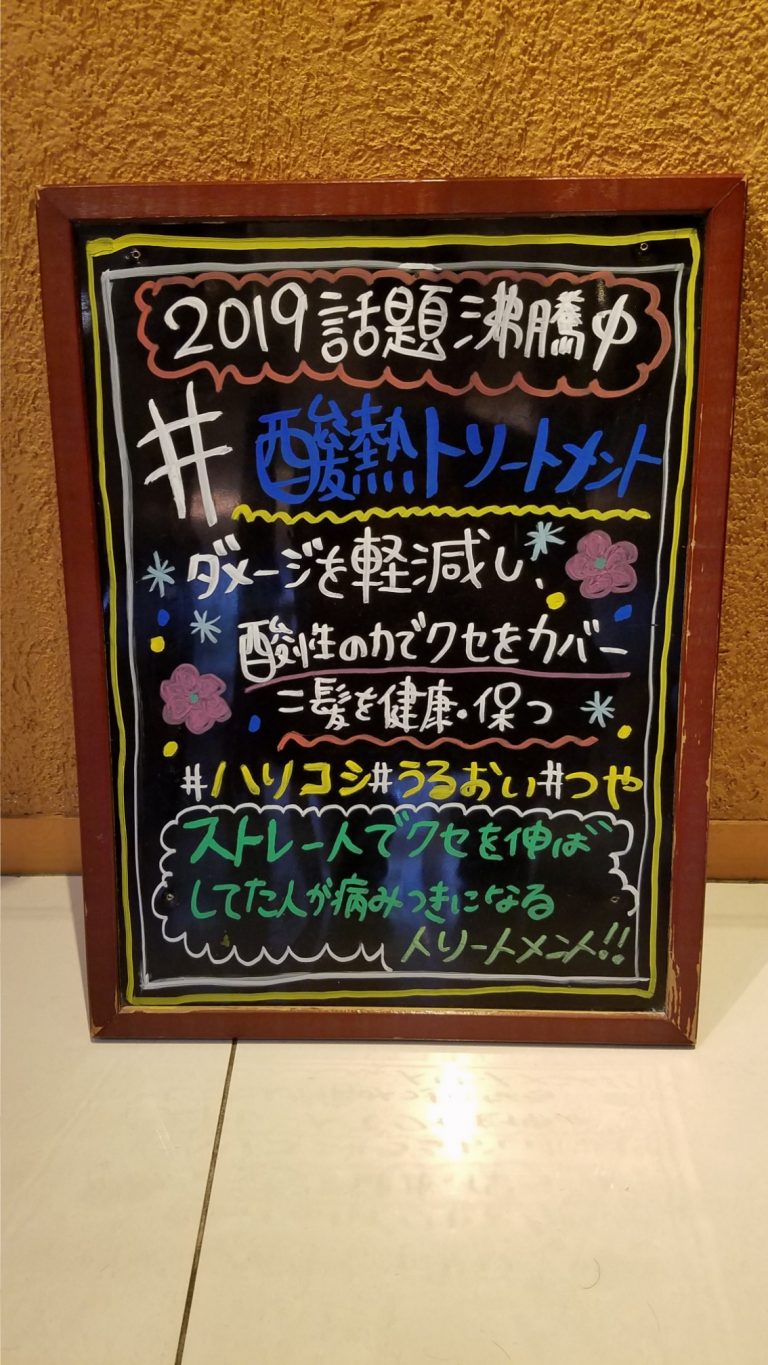 2019話題沸騰中
#酸熱トリートメント
ダメージを軽減し、
酸性の力でクセをカバー
二髪を健康・保つ
#ハリコシ#うるおい#つや
ストレートでクセを伸ば
してた人が病みつきになる
トリートメント!!